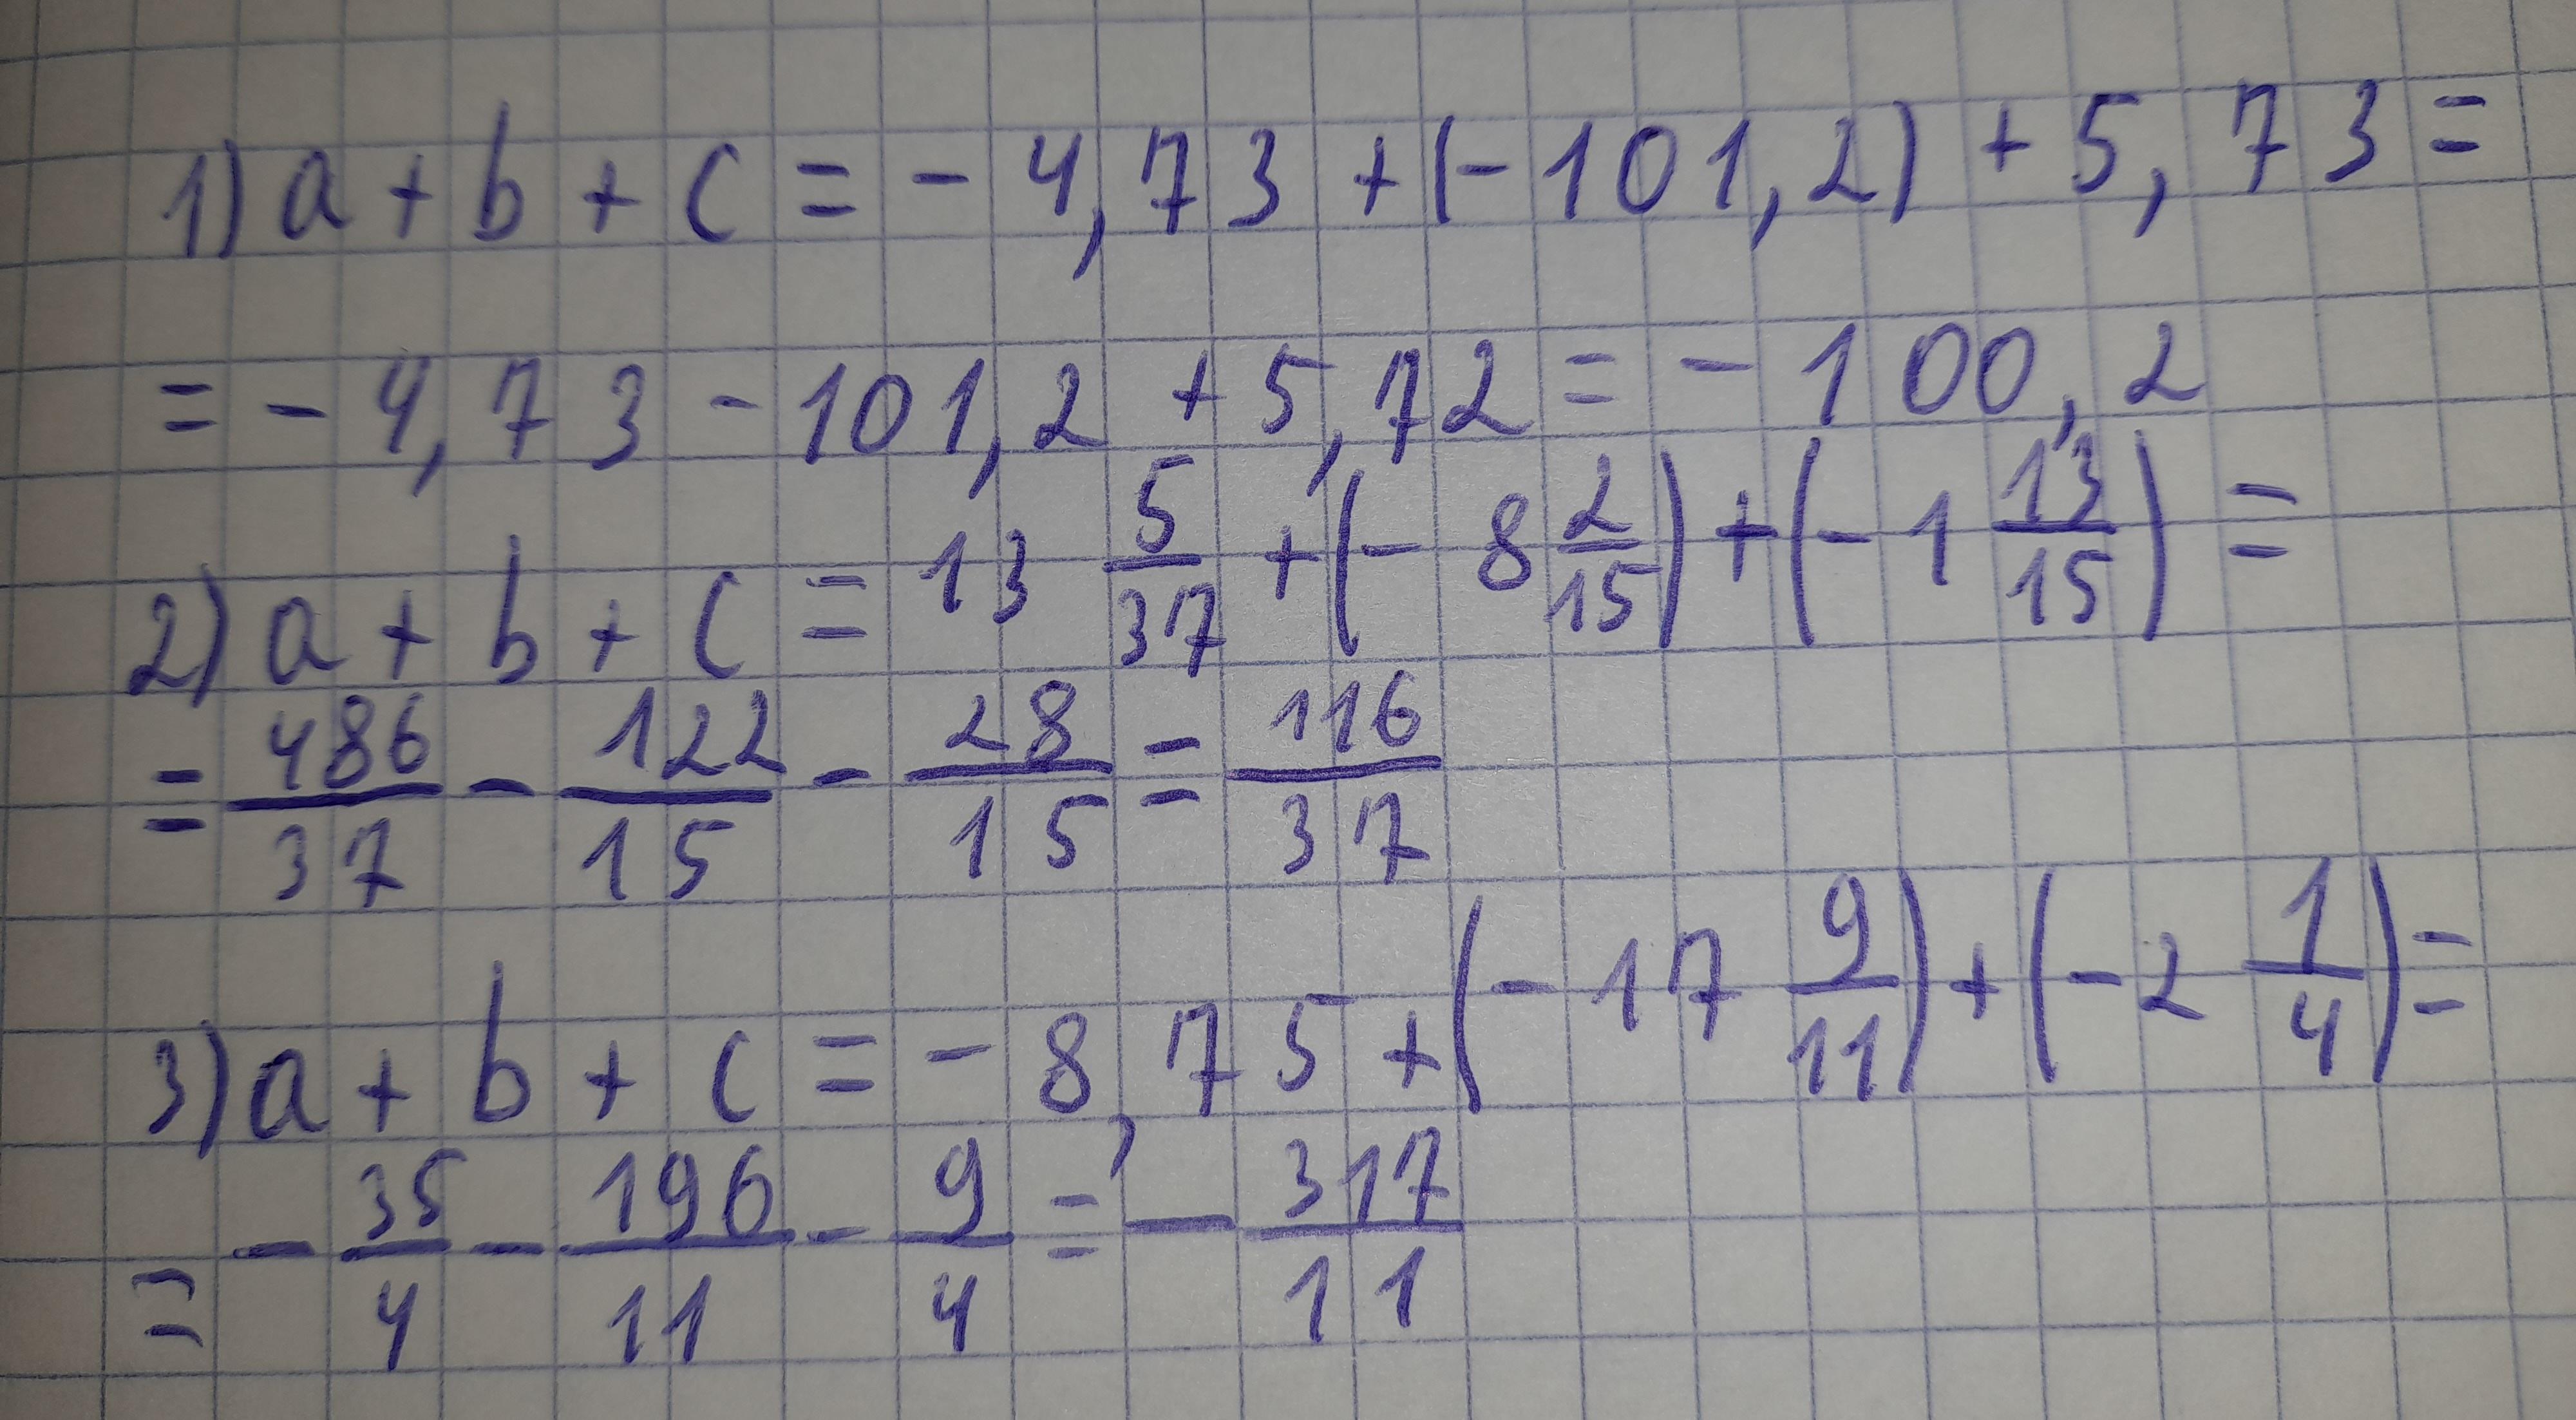 1) a + b + c = - 4,73 + (-101,2) + 5,73 =
= - 4,73 - 101,2 + 5,72 = - 100,2
2) a + b + c = 13 5/37 + (- 8 2/15) + (- 1 13/15) =
= 486/37 - 122/15 - 28/15 = 116/37
3) a + b + c = - 8,75 + (- 17 9/11) + (- 2 1/4) =
= - 35/4 - 196/11 - 9/4 = - 317/11